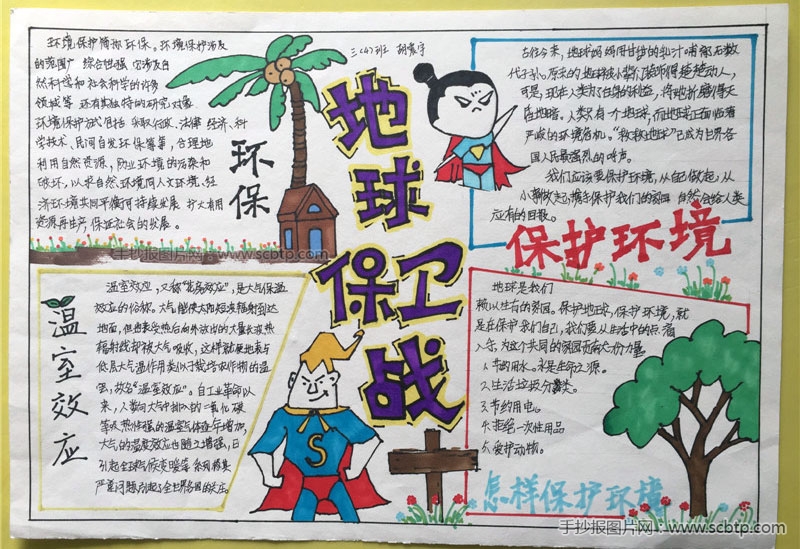 环境保护简称环保。环境保护涉及
的范围广 综合性强 它涉及自
然科学和社会科学的许多
领域等 还有其独特的研究对象
环境保护方式包括 采取行政、法律 经济、科
学技术、民间自发环保等, 合理地
利用自然资源、防止环境的污染和
破坏, 以求自然环境同人文环境、经
济环境共同平衡可持续发展 扩大有用
资源再生产, 保证社会的发展。
环保
三(4)班
地球
保卫
战
古往今来, 地球妈妈用甘甜的乳汁哺育无数
代子孙。原来的地球被小
可是, 现在人类为了自身的利益, 将她折磨得天
昏地暗。人类只有一个地球, 而地球正面临着
严峻的环境危机。"救救地球"已成为世界各
国人民最强烈的呼声。
我们应该要保护环境, 从自己做起, 从
小事做起, 携手保护我们的家园 自然会给人类
应有的回报。
保护环境
温室效应
温室效应, 又称"花房效应", 是大气保温
效应的俗称。大气能使太阳短波辐射到达
地面, 但地表受热后向外放出的大量长波热
辐射线却被大气吸收, 这样就使地表与
低层大气温作用类似于栽培农作物的温
室, 故名"温室效应"。自工业革命以
来, 人类向大气中排入的二氧化碳
等吸热性强的温室气体逐年增加,
大气的温室效应也随之增强, 已
引起全球气候变暖等 系列极其
严重问题, 引起了全世界各国的关注。
S
地球是我们
赖以生存的家园。保护地球, 保护环境, 就
是在保护我们自己, 我们要从生活中的点滴
入手, 为这个共同的家园贡献力量
1、节约用水。水是生命之源。
2、生活垃圾分类。
3、节约用电。
4、拒绝一次性用品
5、爱护动物。
怎样保护环境
手抄报图片网:www.scbtp.com
手抄报图片网:www.scbtp.com